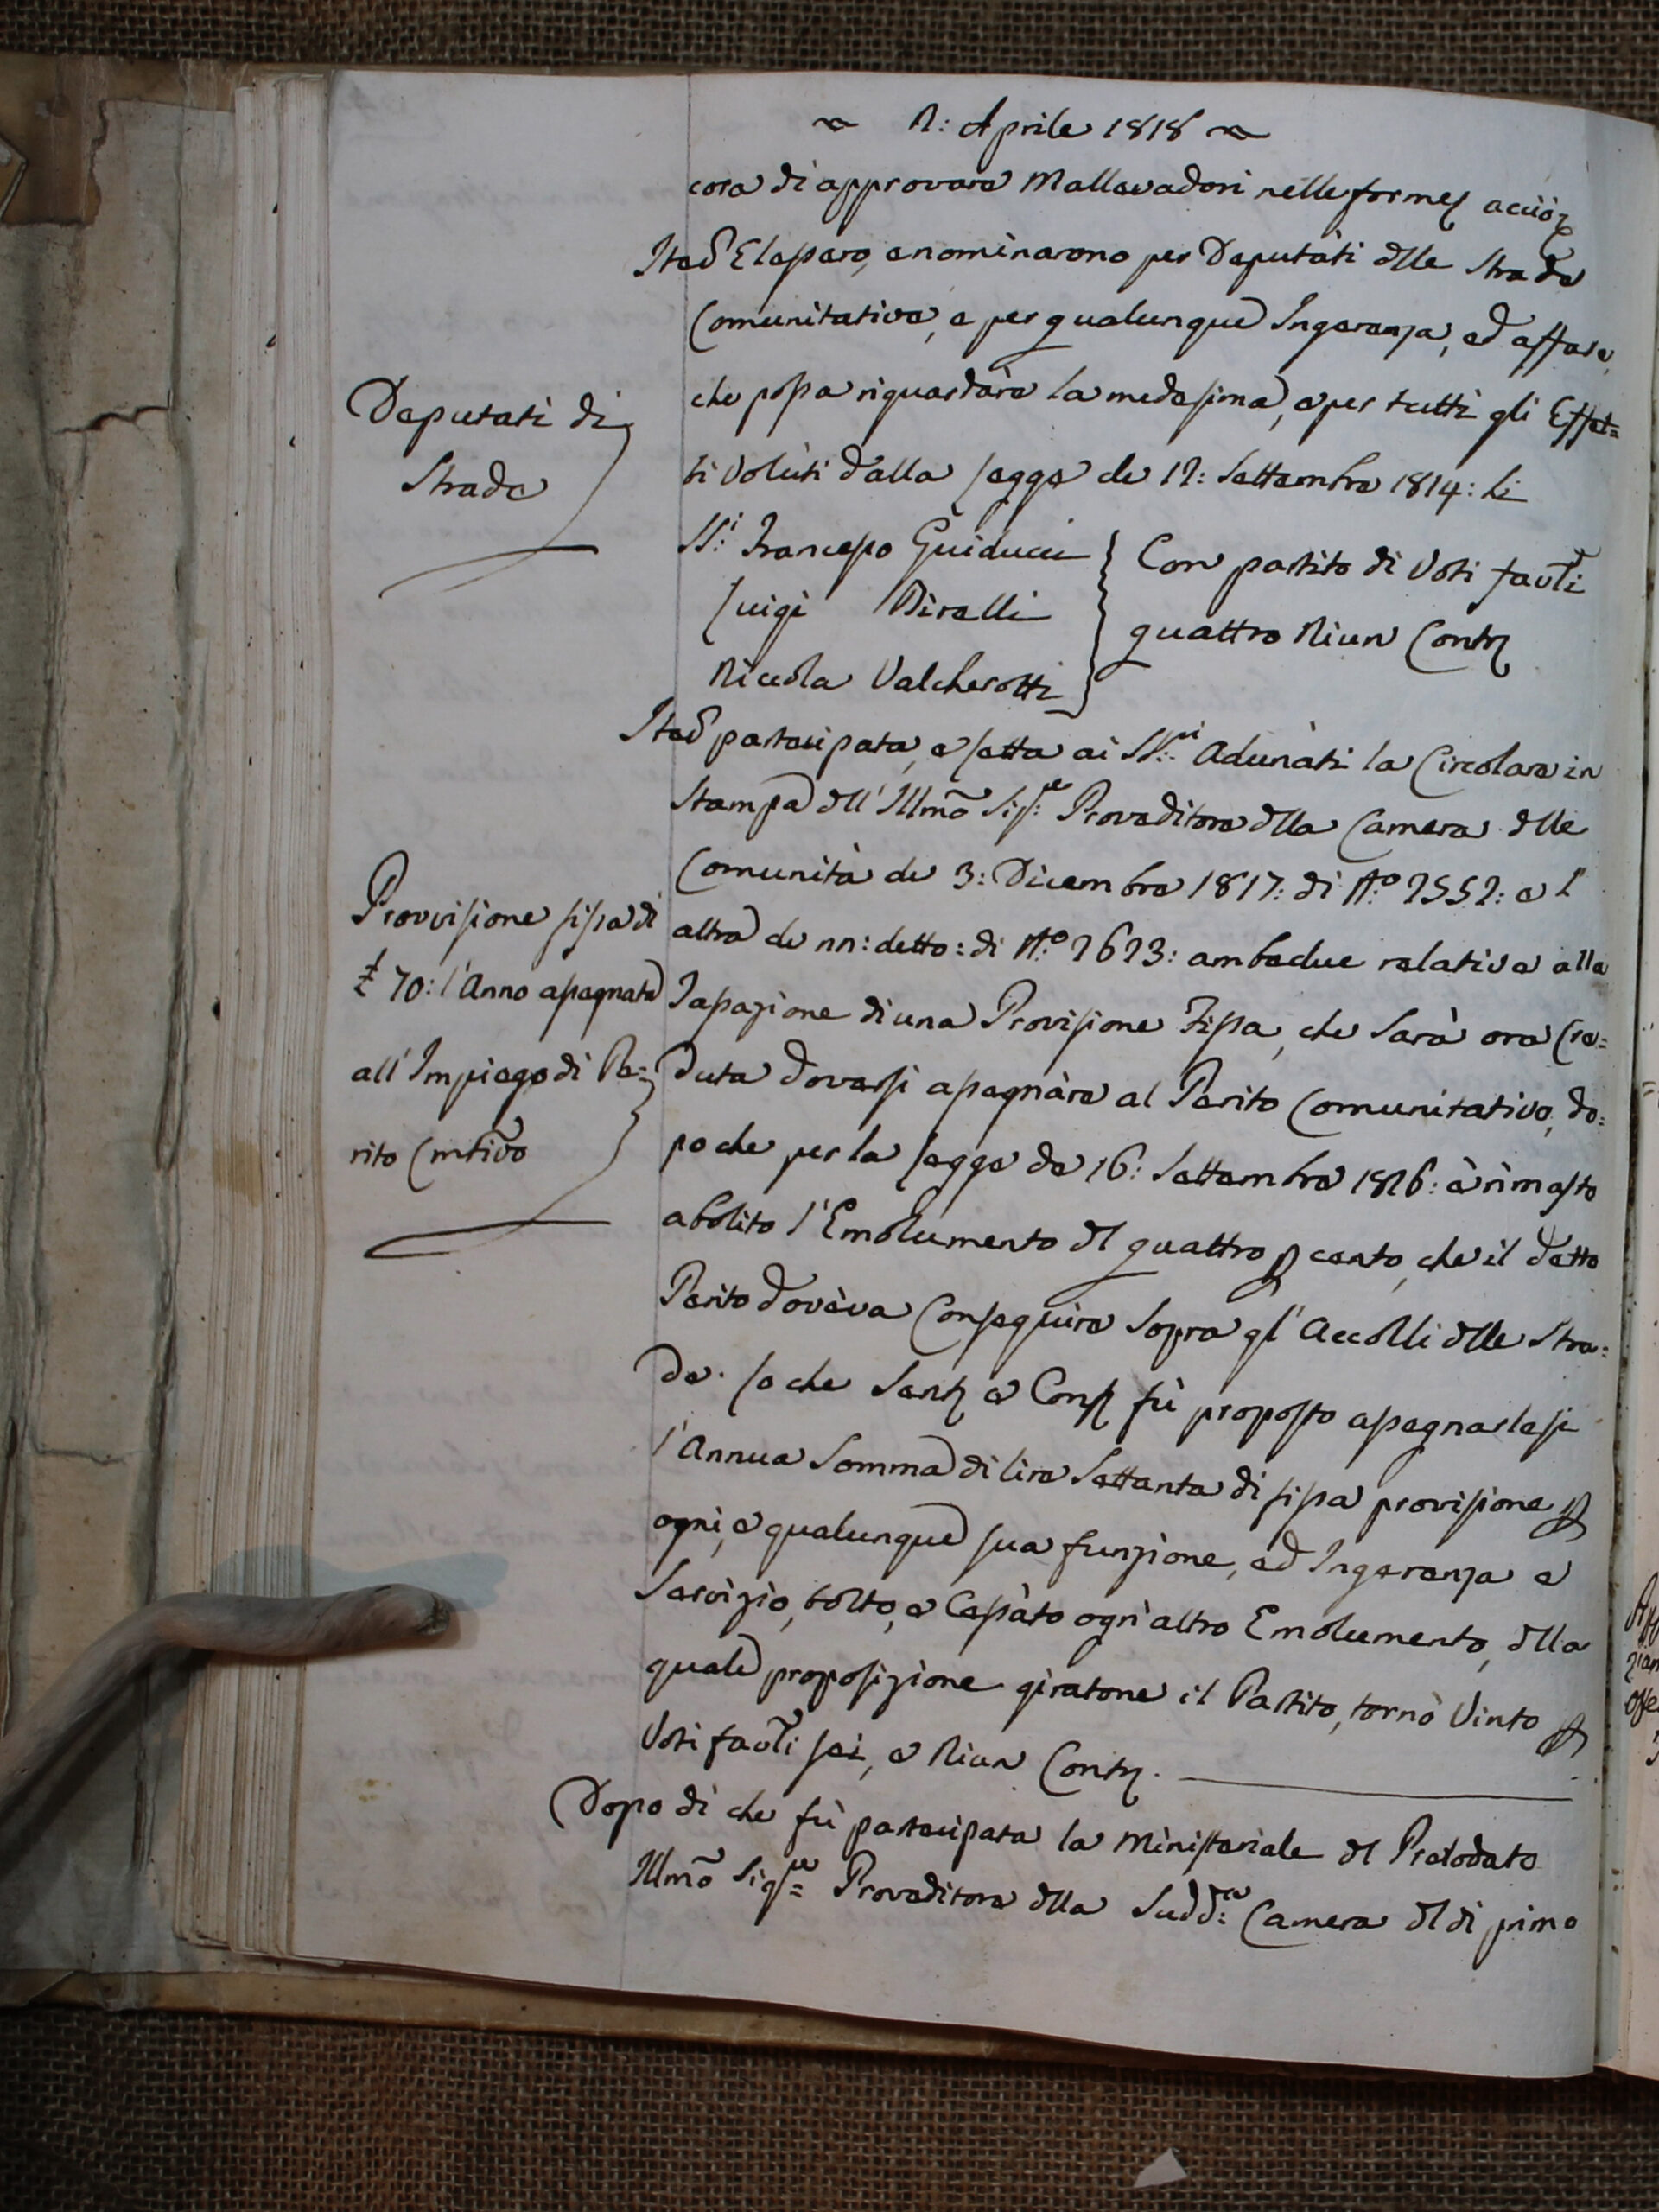 Aprile 1818
cosa di approvare Mallevadori nelle forme, acciò,
Ited Elessero, e nominarono per Deputati dlle Strade
Comunitative, e per qualunque Ingerenza, ed affare,
che possa riguardare le medesime, e per tutti gli Effet=
ti Voluti dalla Legge de Settembre 1814: li
SS:i Francesco Guiducci
Luigi
Niccola Valcherotti
Con partito di Voti favli
quattro Niun Contr
Deputati di
Strade
Ited partecipata, e letta ai SS:ri Adunati la Circolare in
Stampa dll' Illmo Sig:re Proveditore dlla Camera dlle
Comunità de 3: Dicembre 1817: di N:o 2552: e l'
altra de detto: di N:o 2623: ambedue relative alla
Tassazione di una Provisione Fissa, che sarà ora Cre=
duta doversi assegnàre al Perito Comunitativo, do=
po che per la Legge de 16: Settembre 1816: è rimasto
abolito l'Emolumento dl quattro p cento, che il detto
Perito dovéva Conseguire sopra gl' Accolli dlle Stra=
de. Lo che Sent e Cons fù proposto assegnarlesi
l'Annua Somma di lire Settanta di fissa provisione p
ogni, e qualunque sua funzione, ed Ingerenza e
Servizio, tolto, e Cessàto ogn'altro Emolumento, dlla
quale proposizione giratone il Partito, tornò Vinto p
Voti favli sei, e Niun Contr.
Provisione fissa di
£ 70: l'Anno assegnata
all' Impiego di Pe=
rito Cmtivo
Dopo di che fù partecipata la Ministeriale dl Prelodato
Illmo Sig:re Proveditore dlla Sudd:a Camera dl di primo